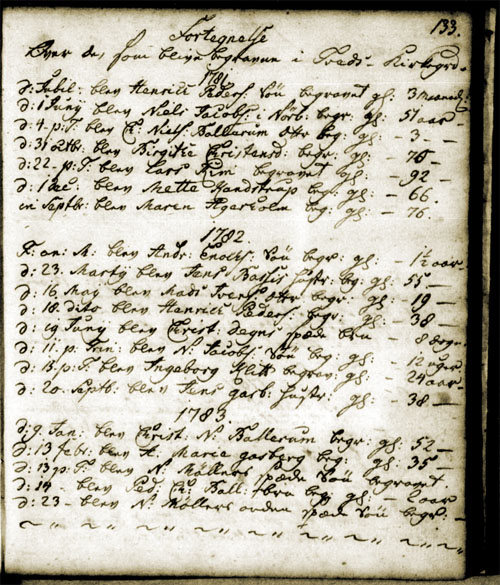 133.
Fortegnelse
Over de, som blive begravne i Tveds Kirkegrd.
1781.
d: Jubil: blev Henrich Peders: Søn begravet gl: 3 Maaned:
d: 1 Juny blev Niels Jacobs: i Norb: begr: gl: 51 aar —
d: 4. p: T. blev C: Niels Ballerum Dtr beg: gl: — 3 —
d: 31 Octb: blev Birgitte Christensd: begr: gl: 76 —
d: 22. p: T. blev Lars Kim begravet gl: — 92 —
d: 1 blev Mette Handstrup beg: gl: — 66.
in Septbr: blev Maren Agerholm beg: gl: — 76.
1782.
F: an: M: blev Andr: Enochs: Søn begr: gl: — 1½ aar
d: 23. Marty blev Jens Hustr: beg: gl: 55 —
d: 16 May blev Mads Ivers: Dtr begr: gl: — 19 —
d: 18 dito blev Henrich Peders: begr: gl: — 38 —
d: 19 Juny blev Christ: Degns spæde 8 døgn:
d: 11. p. Trin: blev N: Jacobs: Søn beg: gl: — 12 uger
d: 13. p: T blev Ingeborg Klitt begrav: gl: — 24 aar —
d: 20 Septb: blev Jens garb: Hustr: gl: — 38 —
1783.
d: 9 Jan: blev Christ: N: Ballerum begr: gl: 52 —
d: 13 febr: blev A. Marie gasberg beg: gl: 35 —
d: 13 p: T. blev N: Møllers spæde Søn begravet
d: 14 — blev Ped: Chr: Ball: beg gl: — 2 aar
d: 23 — blev N: Møllers anden spæde Søn begr: —